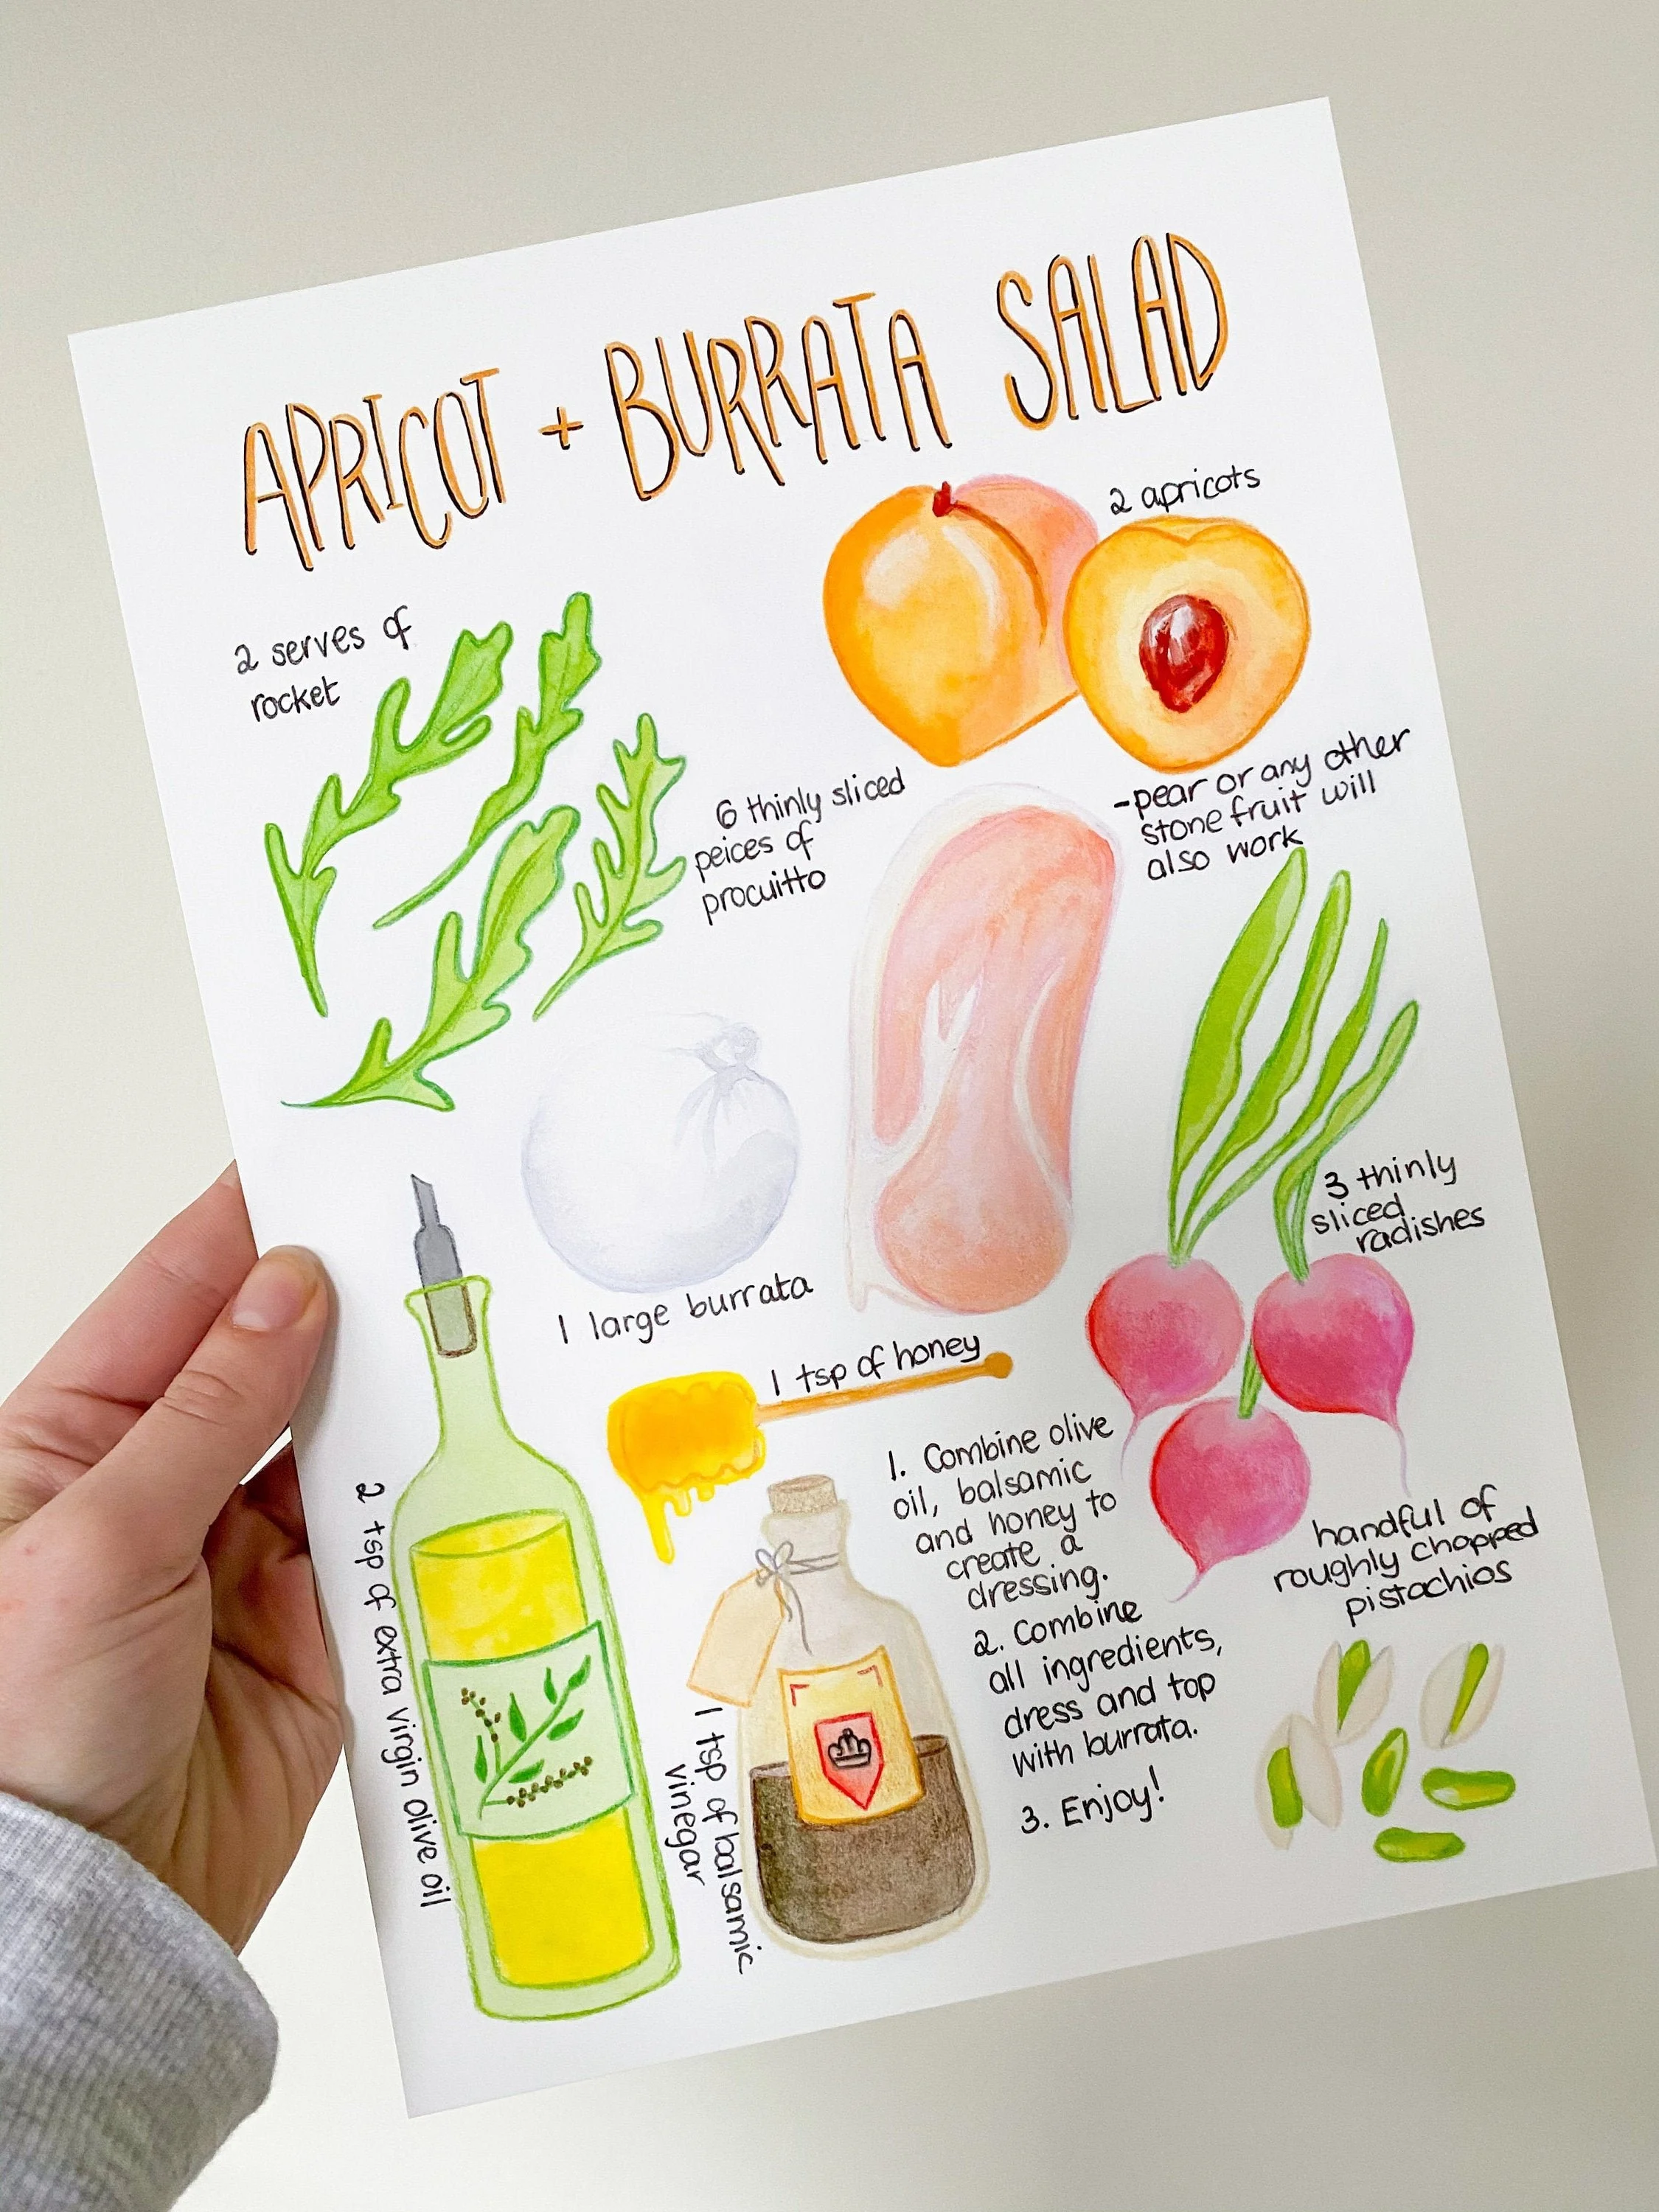 APRICOT + BURRATA SALAD
2 apricots
-pear or any other
stone fruit will
also work
2 serves of
rocket
6 thinly sliced
peices of
procuitto
1 large burrata
3 thinly
sliced
radishes
1 tsp of honey
1. Combine olive
oil, balsamic
and honey to
create a
dressing.
2. Combine
all ingredients,
dress and top
with burrata.
3. Enjoy!
handful of
roughly chopped
pistachios
2 tsp of extra virgin olive oil
1 tsp of balsamic
vinegar